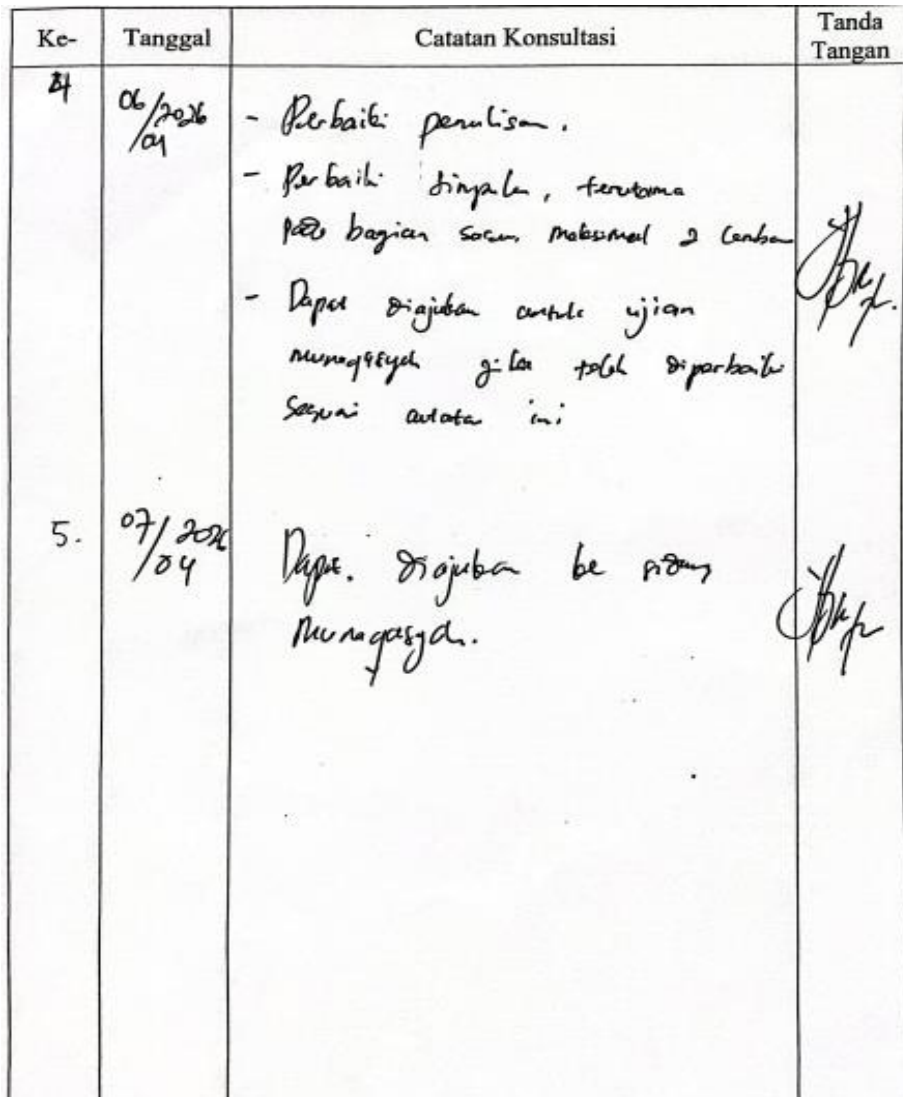 Ke- Tanggal Catatan Konsultasi Tanda Tangan
4 06/2026/04 - Perbaiki penulisan.
- Perbaiki simpulan, terutama
pada bagian saran, maksimal 2 lembar
- Dapat diajukan untuk ujian
munaqasyah jika telah diperbaiki
sesuai catatan ini
5. 07/2026/04 Dapat diajukan ke sidang
munaqasyah.